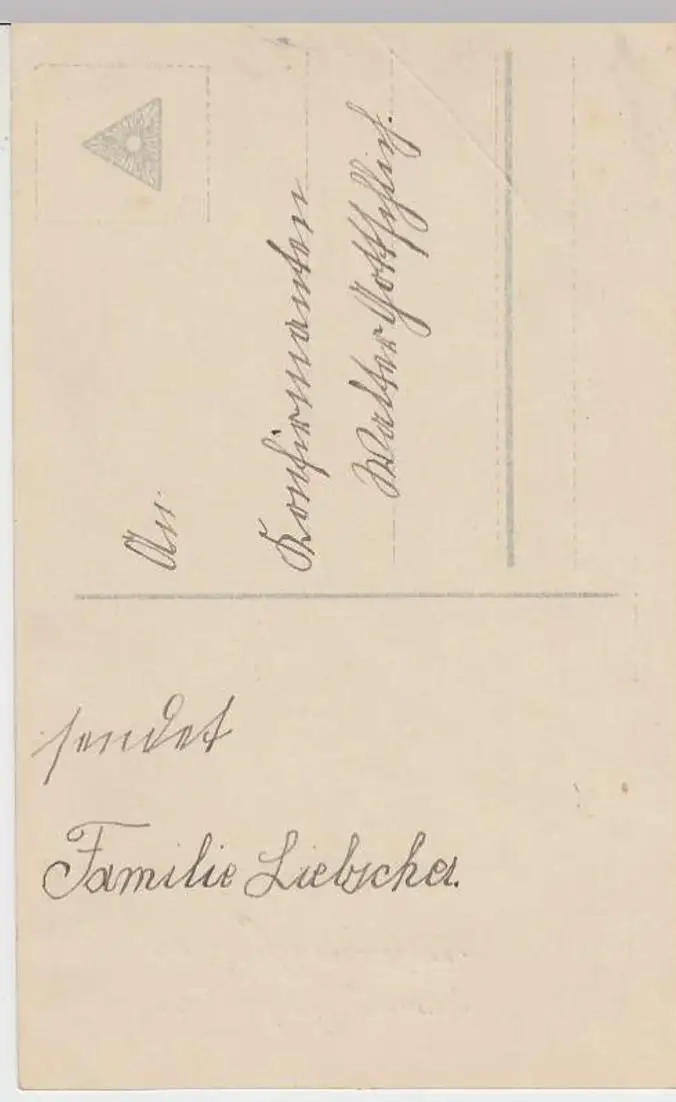 An
Konfirmanden
Walter Gottschlich.
sendet
Familie Liebscher.